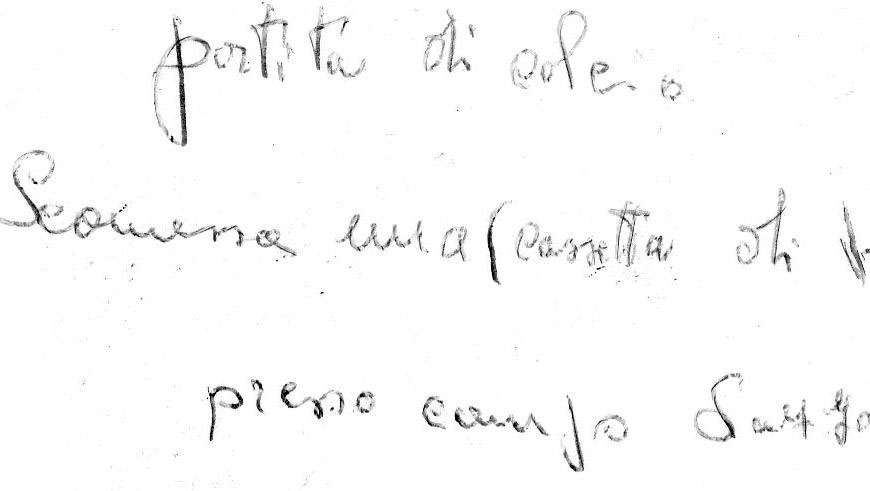 partita di calcio
Scomessa una (cassetta di
presso campo